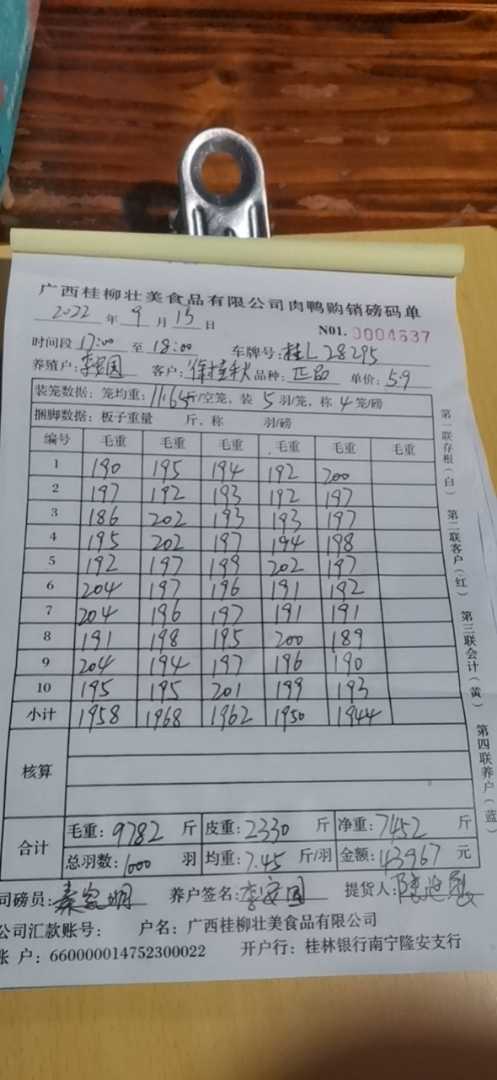 广西桂柳壮美食品有限公司肉鸭购销磅码单
2022 年 9 月 15 日 N01. 0004637
时间段 17:00 至 18:00 车牌号: 桂L28295
养殖户: 李安国 客户: 品种: 正品 单价: 5.9
装笼数据: 笼均重: 11.65 斤/空笼, 装 5 羽/笼, 称 4 笼/磅
捆脚数据: 板子重量 斤, 称 羽/磅
编号 毛重 毛重 毛重 毛重 毛重 毛重
1 190 195 194 192 200
2 197 192 193 192 197
3 186 202 193 193 197
4 195 202 197 194 198
5 192 197 199 202 197
6 204 197 196 191 192
7 204 196 197 191 191
8 191 198 195 200 189
9 204 194 197 196 190
10 195 195 201 199 193
小计 1958 1968 1962 1950 1944
核算
合计 毛重: 9782 斤 皮重: 2330 斤 净重: 7452 斤
总羽数: 1000 羽 均重: 7.45 斤/羽 金额: 43967 元
司磅员: 养户签名: 李安国 提货人:
公司汇款账号: 户名: 广西桂柳壮美食品有限公司
账 户: 660000014752300022 开户行: 桂林银行南宁隆安支行
第一联存根(白) 第二联客户(红) 第三联会计(黄) 第四联养户(蓝)